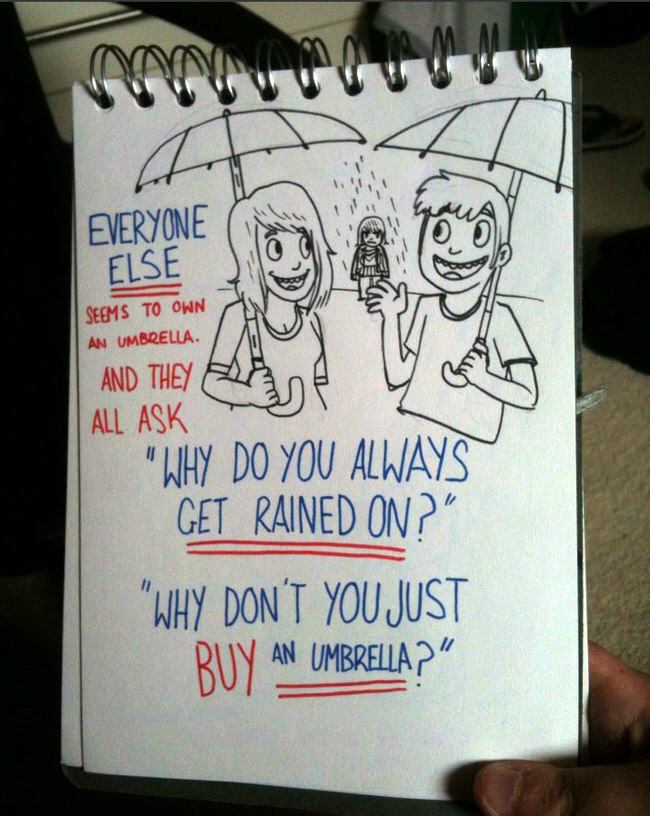 EVERYONE
ELSE
SEEMS TO OWN
AN UMBRELLA.
AND THEY
ALL ASK
"WHY DO YOU ALWAYS
GET RAINED ON?"
"WHY DON'T YOU JUST
BUY AN UMBRELLA?"